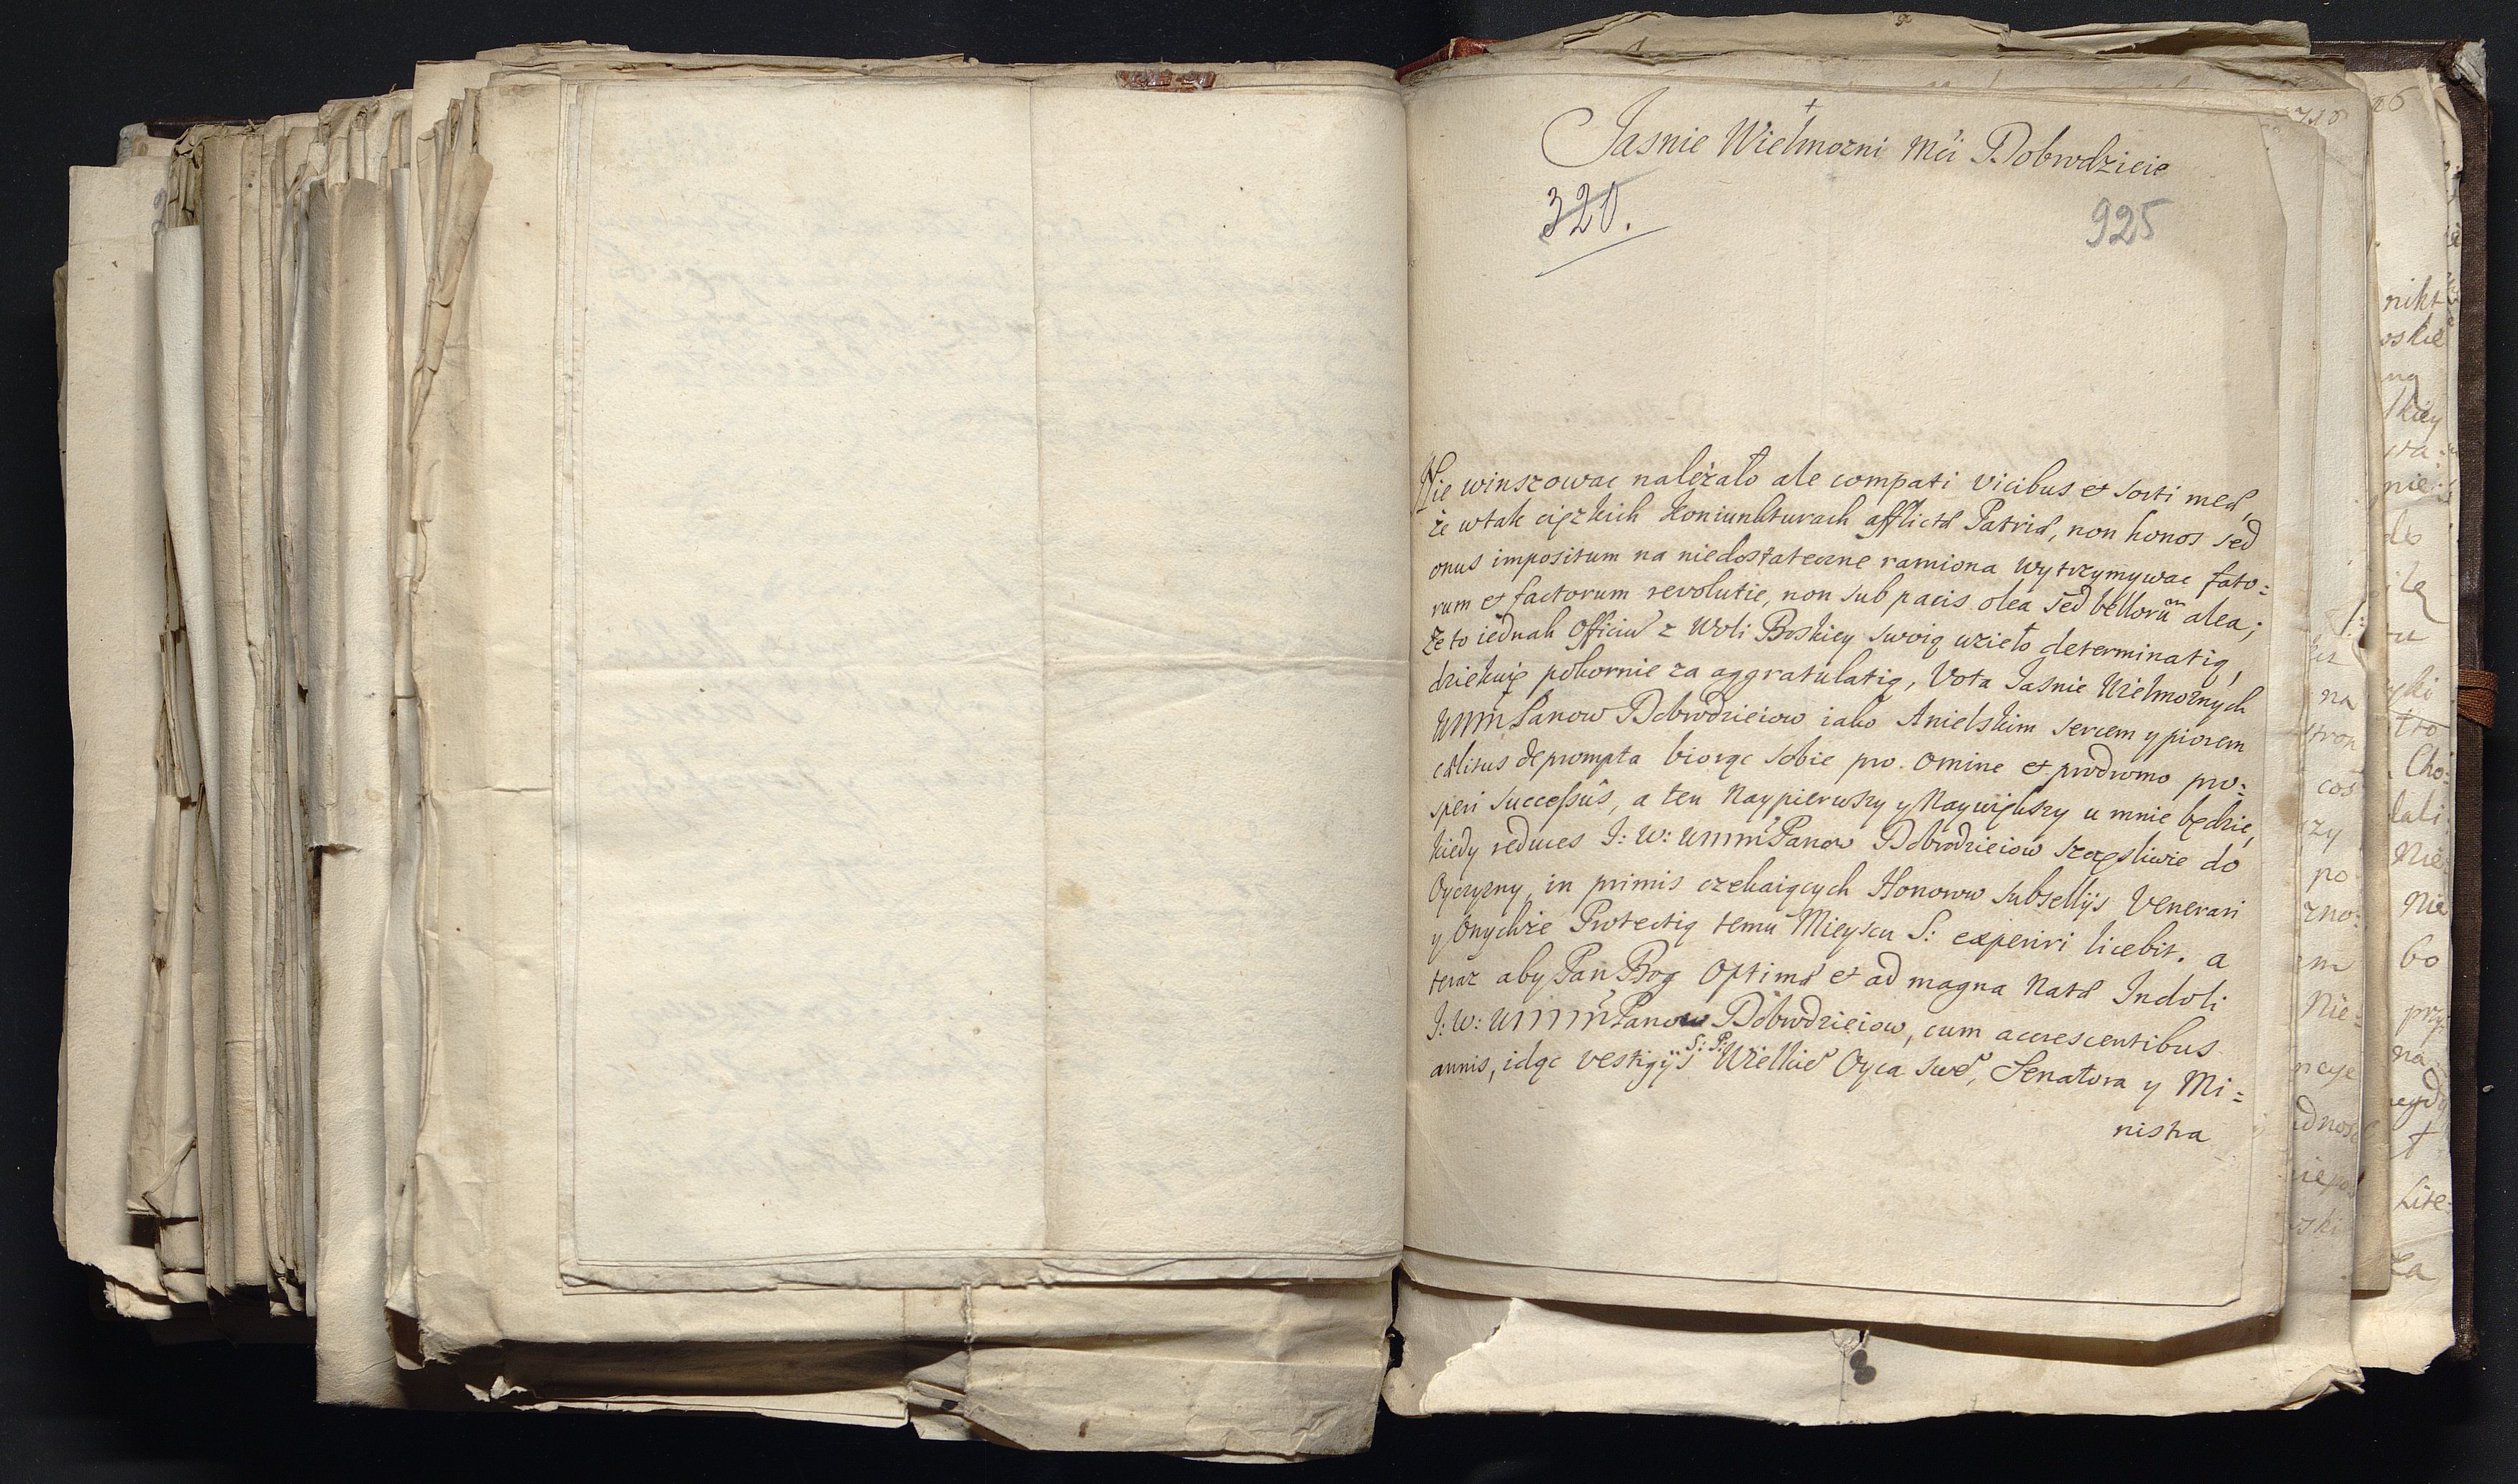 +
Jasnie Wielmozni Mći Dobrodzieie
320.
925
Nie winszowac należało ale compati vicibus et sorti meæ,
że wtak cięzkich koniunkturach afflictæ Patriæ, non honos sed
onus impositum na niedostateczne ramiona wytrzymywac fato=
rum et factorum revolutie, non sub pacis olea sed bellorum alea;
że to iednak Officiū z Woli Boskiey swoią wzieło determinatią,
dziekuię pokornie za aggratulatią, Vota Jasnie Wielmożnych
WMM Panow Dobrodzieiow iako Anielskim sercem y piorem
cælitus deprompta biorąc sobie pro omine et prodromo pro=
speri successûs, a ten Naypierwszy y Naywiększy u mnie będzie,
kiedy reduces J: W: WMM Panow Dobrodzieiow szczęsliwie do
Oyczyzny, in primis czekaiących Honorow subsellijs Venerari
y Onychże Protectią temu Mieyscu S: experiri licebit. a
teraz aby Pan Bog Optimæ et ad magna Natæ Indoli
J: W: WMM Panow Dobrodzieiow, cum accrescentibus
annis, idąc vestigijs S: P: Wielkieº Oyca sweº, Senatora y Mi=
nistra
nikt
oskie
na
stron
cos
zy
po
zno:
Nie=
Cho=
Nie
Nie
bo
na
Lite=